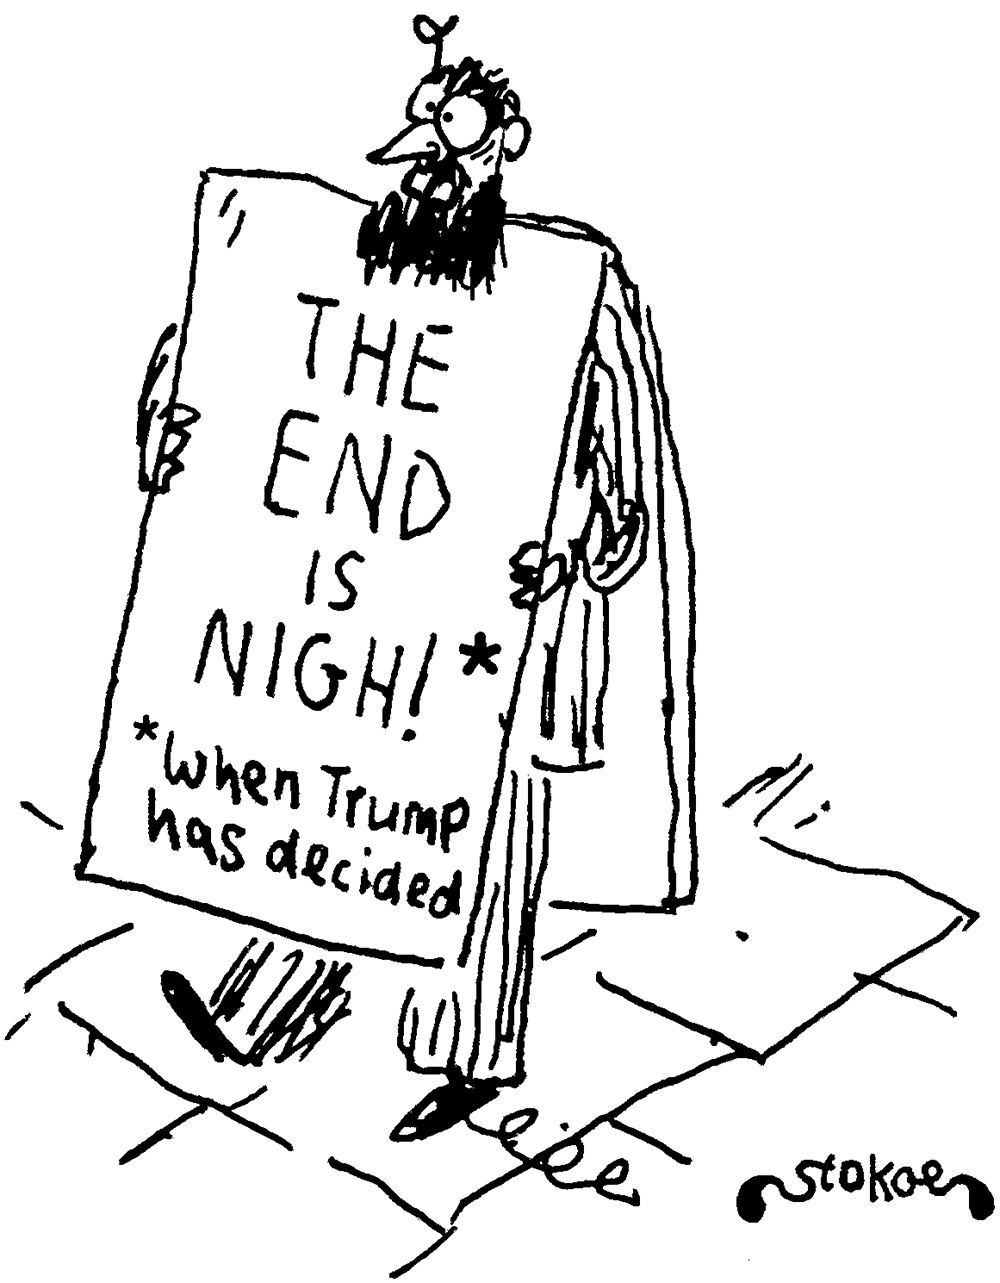 THE
END
IS
NIGH!*
*when Trump
has decided
stokoe